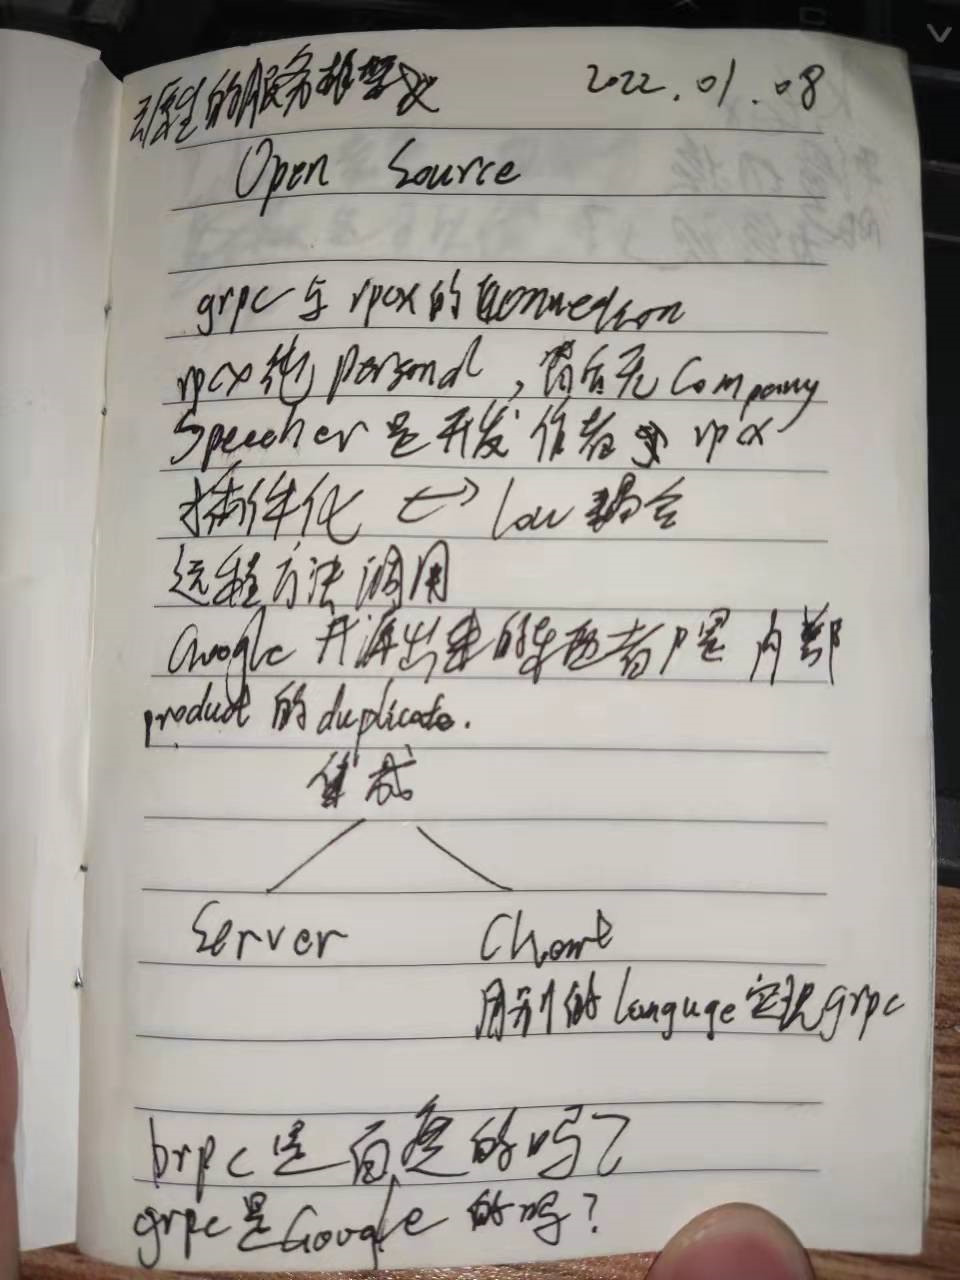 云原生的服务 2022.01.08
Open Source
grpc与rpcx的
rpcx纯Personal,背后无Company
Speecher是开发作者 rpcx
插件化 ↔ Low 耦合
远程方法调用
Google 开源出来的 是 内部
product 的duplicate.
集成
Server Client
用别的language实现grpc
brpc是百度的吗?
grpc是Google 的吗?